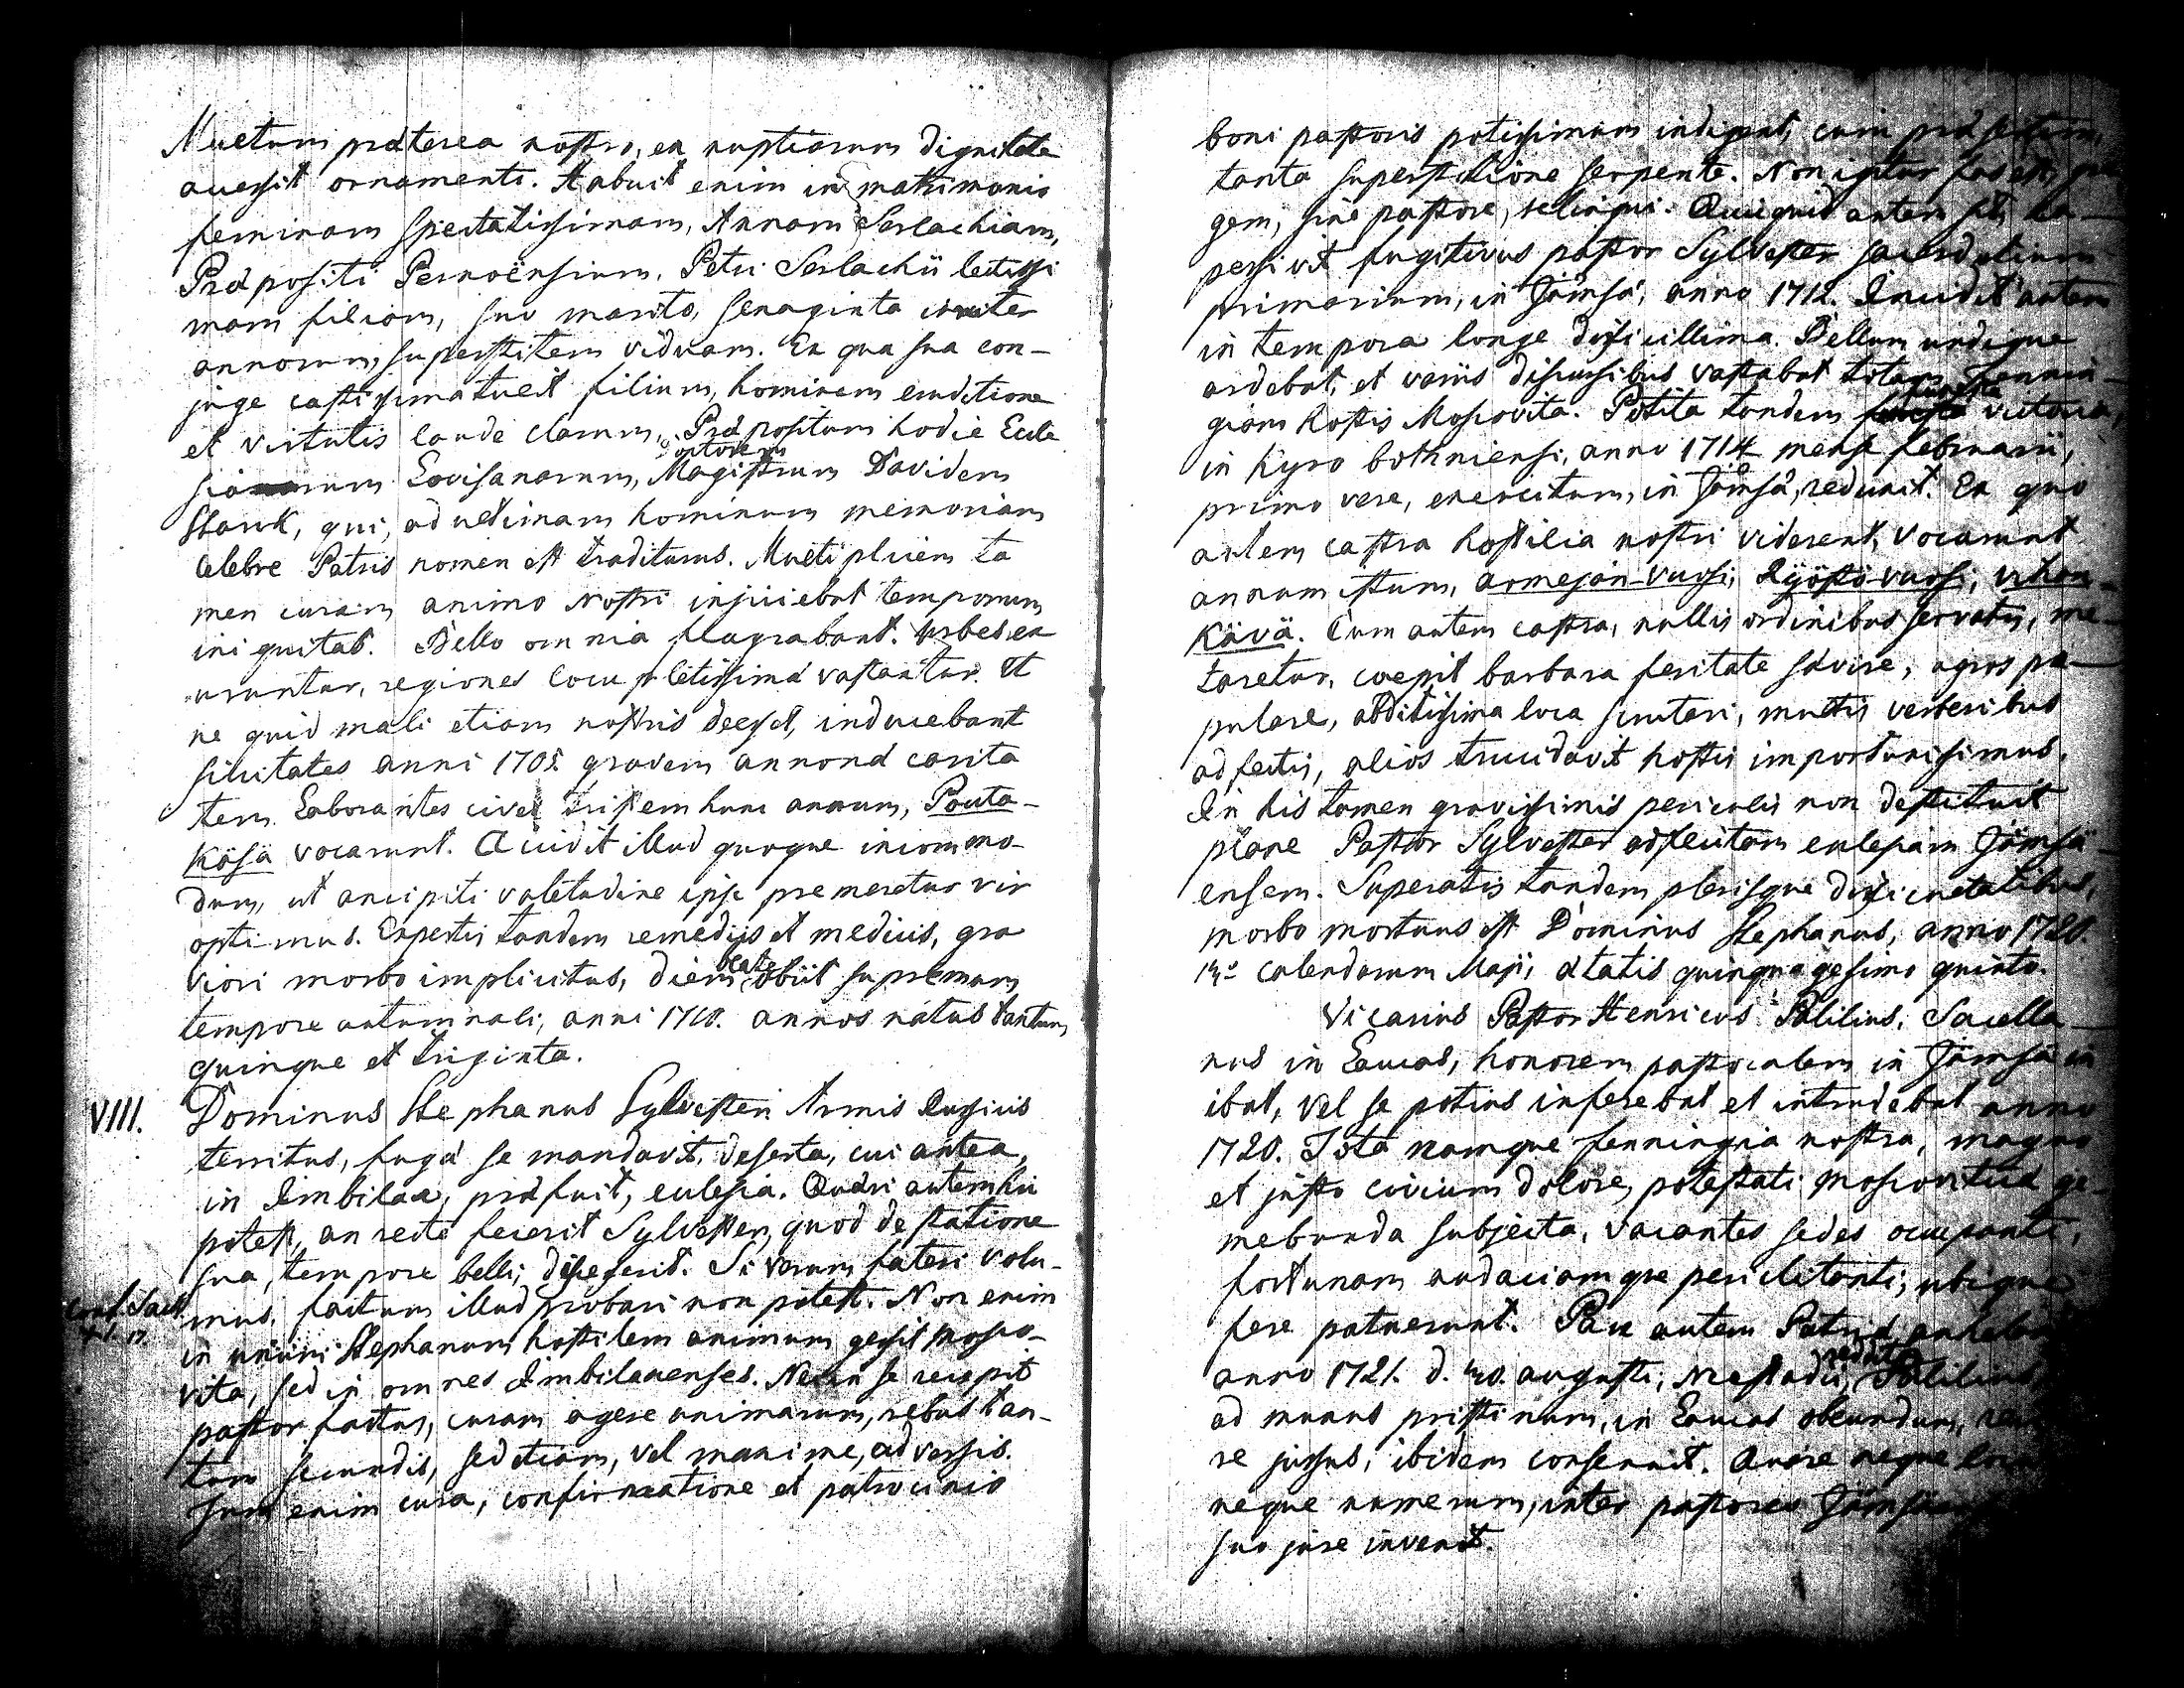 Multum præterea nostro, ex nuptiarum dignitate
accessit ornamenti. Habuit enim in matrimonio
feminam spectatissimam, Annam Serlachiam,
Præpositi Pernoënsium, Petri Serlachii lectissi
mam filiam, suo marito, sexaginta circiter
annorum, superstitem viduam. Ex qua sua con-
juge castissima tulit filium, hominem eruditione
et virtutis laude clarum, Præpositum hodie Eccle
siarum Lovisanarum, Doctorem Magistrum Davidem
Starck, qui, ad ultimam hominum memoriam
celebre Patris nomen est traditurus. Multiplicem ta
men curam animo Nostri injiciebat temporum
iniquitas. Bello omnia flagrabant. Urbes ex
uruntur, regiones locupletissimæ vastantur. Et
ne quid mali etiam nostris deesset, inducebant
siccitates anni 1708 gravem annonæ carita
tem. Laborantes cives tristem hunc annum, Pouta-
Kösä vocarunt. Accidit illud quoque incommo-
dum, ut ancipiti valetudine ipse premeretur vir
optimus. Expertis tandem remediis et medicis, gra
viori morbo implicitus, diem beate obiit supremum
tempore autumnali, anni 1710. annos natus tantum,
quinque et triginta.
VIII. Dominus Stephanus Sylvester. Armis Russicis
territus, fugæ se mandavit, deserta, cui antea,
in Imbilax, præfuit, eclesia. Quæri autem hic
potest, an recte fecerit Sylvester, quod de statione
sua, tempore belli, discesserit. Si verum fateri volu-
mus, factum illud probari non potest. Non enim
Conf. Sack
in unum Stephanum hostilem animum gessit Mosco-
vita, sed in omnes Imbilaxenses. Necem se recepit
pastor factus, curam agere animarum, rebus tan-
tum secundis, sed etiam, vel maxime, adversis.
Tum enim cura, confirmatione et patrocinio
boni pastoris potissimum indigent, cum præsertim,
tanta superstitione serpente. Non igitur fas est,
gem, sine pastore, relinqui. Quicquid autem sit,
pessivit fugitivus pastor Sylvester sacerdotium
primarium, in Jämsä, anno 1712. Incidit autem
in tempora longe difficillima. Bellum undique
ardebat, et variis discursibus vastabat totam Fennin-
giam hostis Moscovita. Potita tandem funesta victoria,
in Kyro bothniensi, anno 1714 mense februarii,
primo vere, exercitum, in Jämsä, reduxit. Ex quo
autem castra hostilia nostri viderent, vocarunt
annum istum, armejan-vuosi, Ryöstö-vuosi, vihan-
Kävä. Cum autem castra, nullis ordinibus servatis, me-
taretur, coepit barbara feritate sævire, agros po-
pulare, abditissima loca scrutari, multis verberibus
adfectis, alios trucidavit hostis importunissimus.
In his tamen gravissimis periculis non destituit
plane Pastor Sylvester adflictam eclesiam Jämsä-
ensem. Superatis tandem plerisque dificultatibus,
morbo mortuus est Dominus Stephanus, anno 1720.
calendarum Maji, ætatis quinquagesimo quinto.
Vicarius Pastor Henricus Palilius, Sacella-
nus in Laucas, honorem pastoralem in Jämsä in
ibat, vel se potius inferebat et intrudebat anno
1720. Tota namque fenningia nostra, magno
et justo civium dolore, potestati Moscoviticæ ge-
mebunda subjecta, vacantes sedes occupanti,
fortunam audaciamque periclitanti, ubique
fere patuerunt. Pace autem Patriæ
anno 1721. d. 30. augusti, Nystadii, reddita Palilius,
ad munus pristinum, in Laucas obeundum,
re jussus, ibidem consenuit. Quare neque
neque numerum, inter pastores
suo jure invenit.